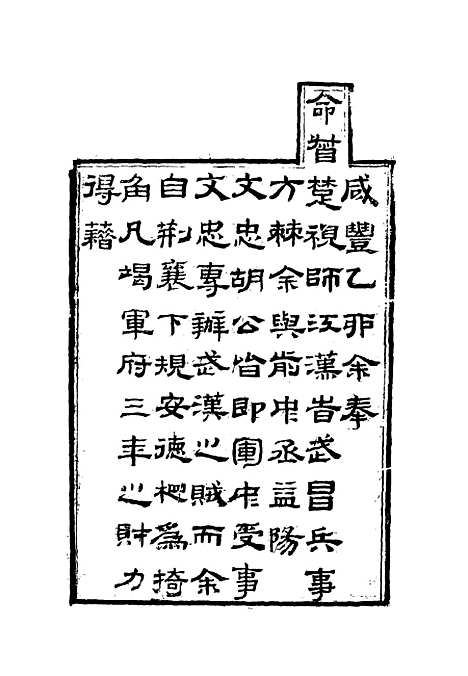 咸豐乙卯余奉
命督楚視師江漢旹武昌兵事
方棘余與前中丞益陽
文忠胡公皆即軍中受事
文忠專辦武漢之賊而余
自荊襄下規安德爲掎
角凡竭軍府三年之財力
得藉